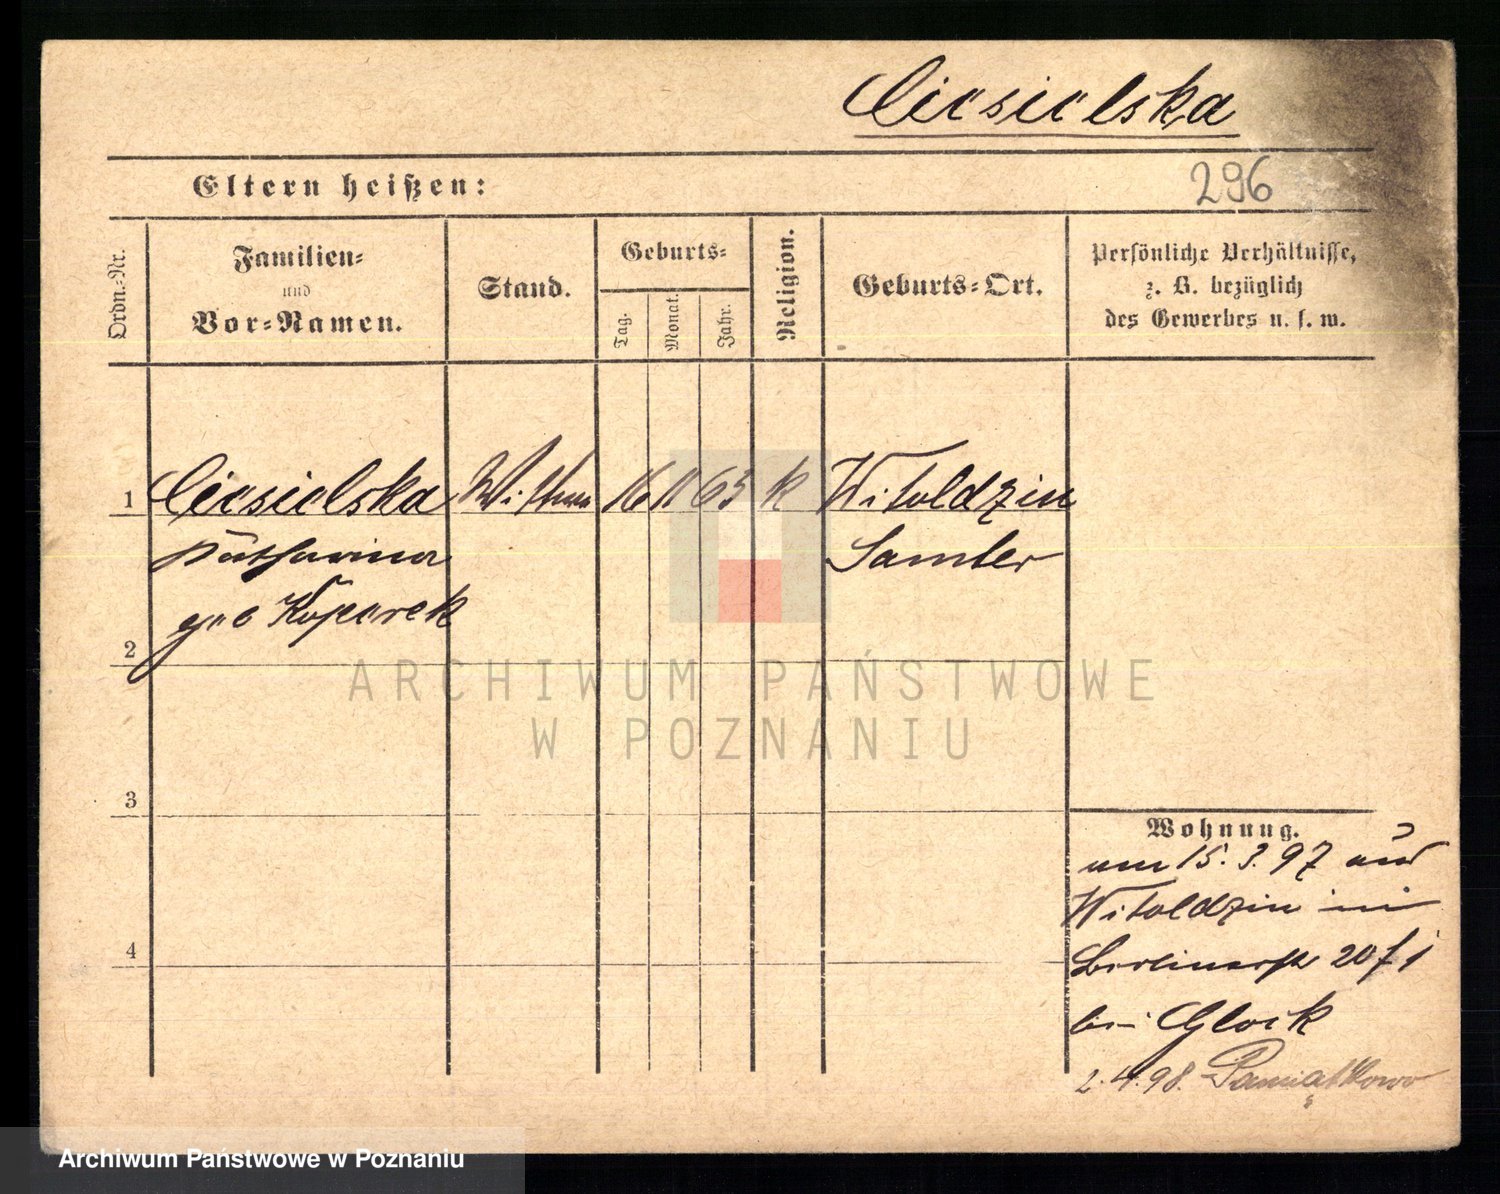 Ciesielska
Eltern heißen:
296
Ordn.-Nr.
Familien-
und
Vor-Namen.
Stand.
Geburts-
Tag.
Monat.
Jahr.
Religion.
Geburts-Ort.
Persönliche Verhältnisse,
z. B. bezüglich
des Gewerbes u. s. w.
1 Ciesielska 16 11 65 k Witoldzin
Katharina Samter
geb
2
3
4
Wohnung.
am 15. 3. 97 aus
Witoldzin in
Berlinerstr 20 f I
bei Glock
2. 4. 98. Pamiątkowo
ARCHIWUM PAŃSTWOWE
W POZNANIU
Archiwum Państwowe w Poznaniu